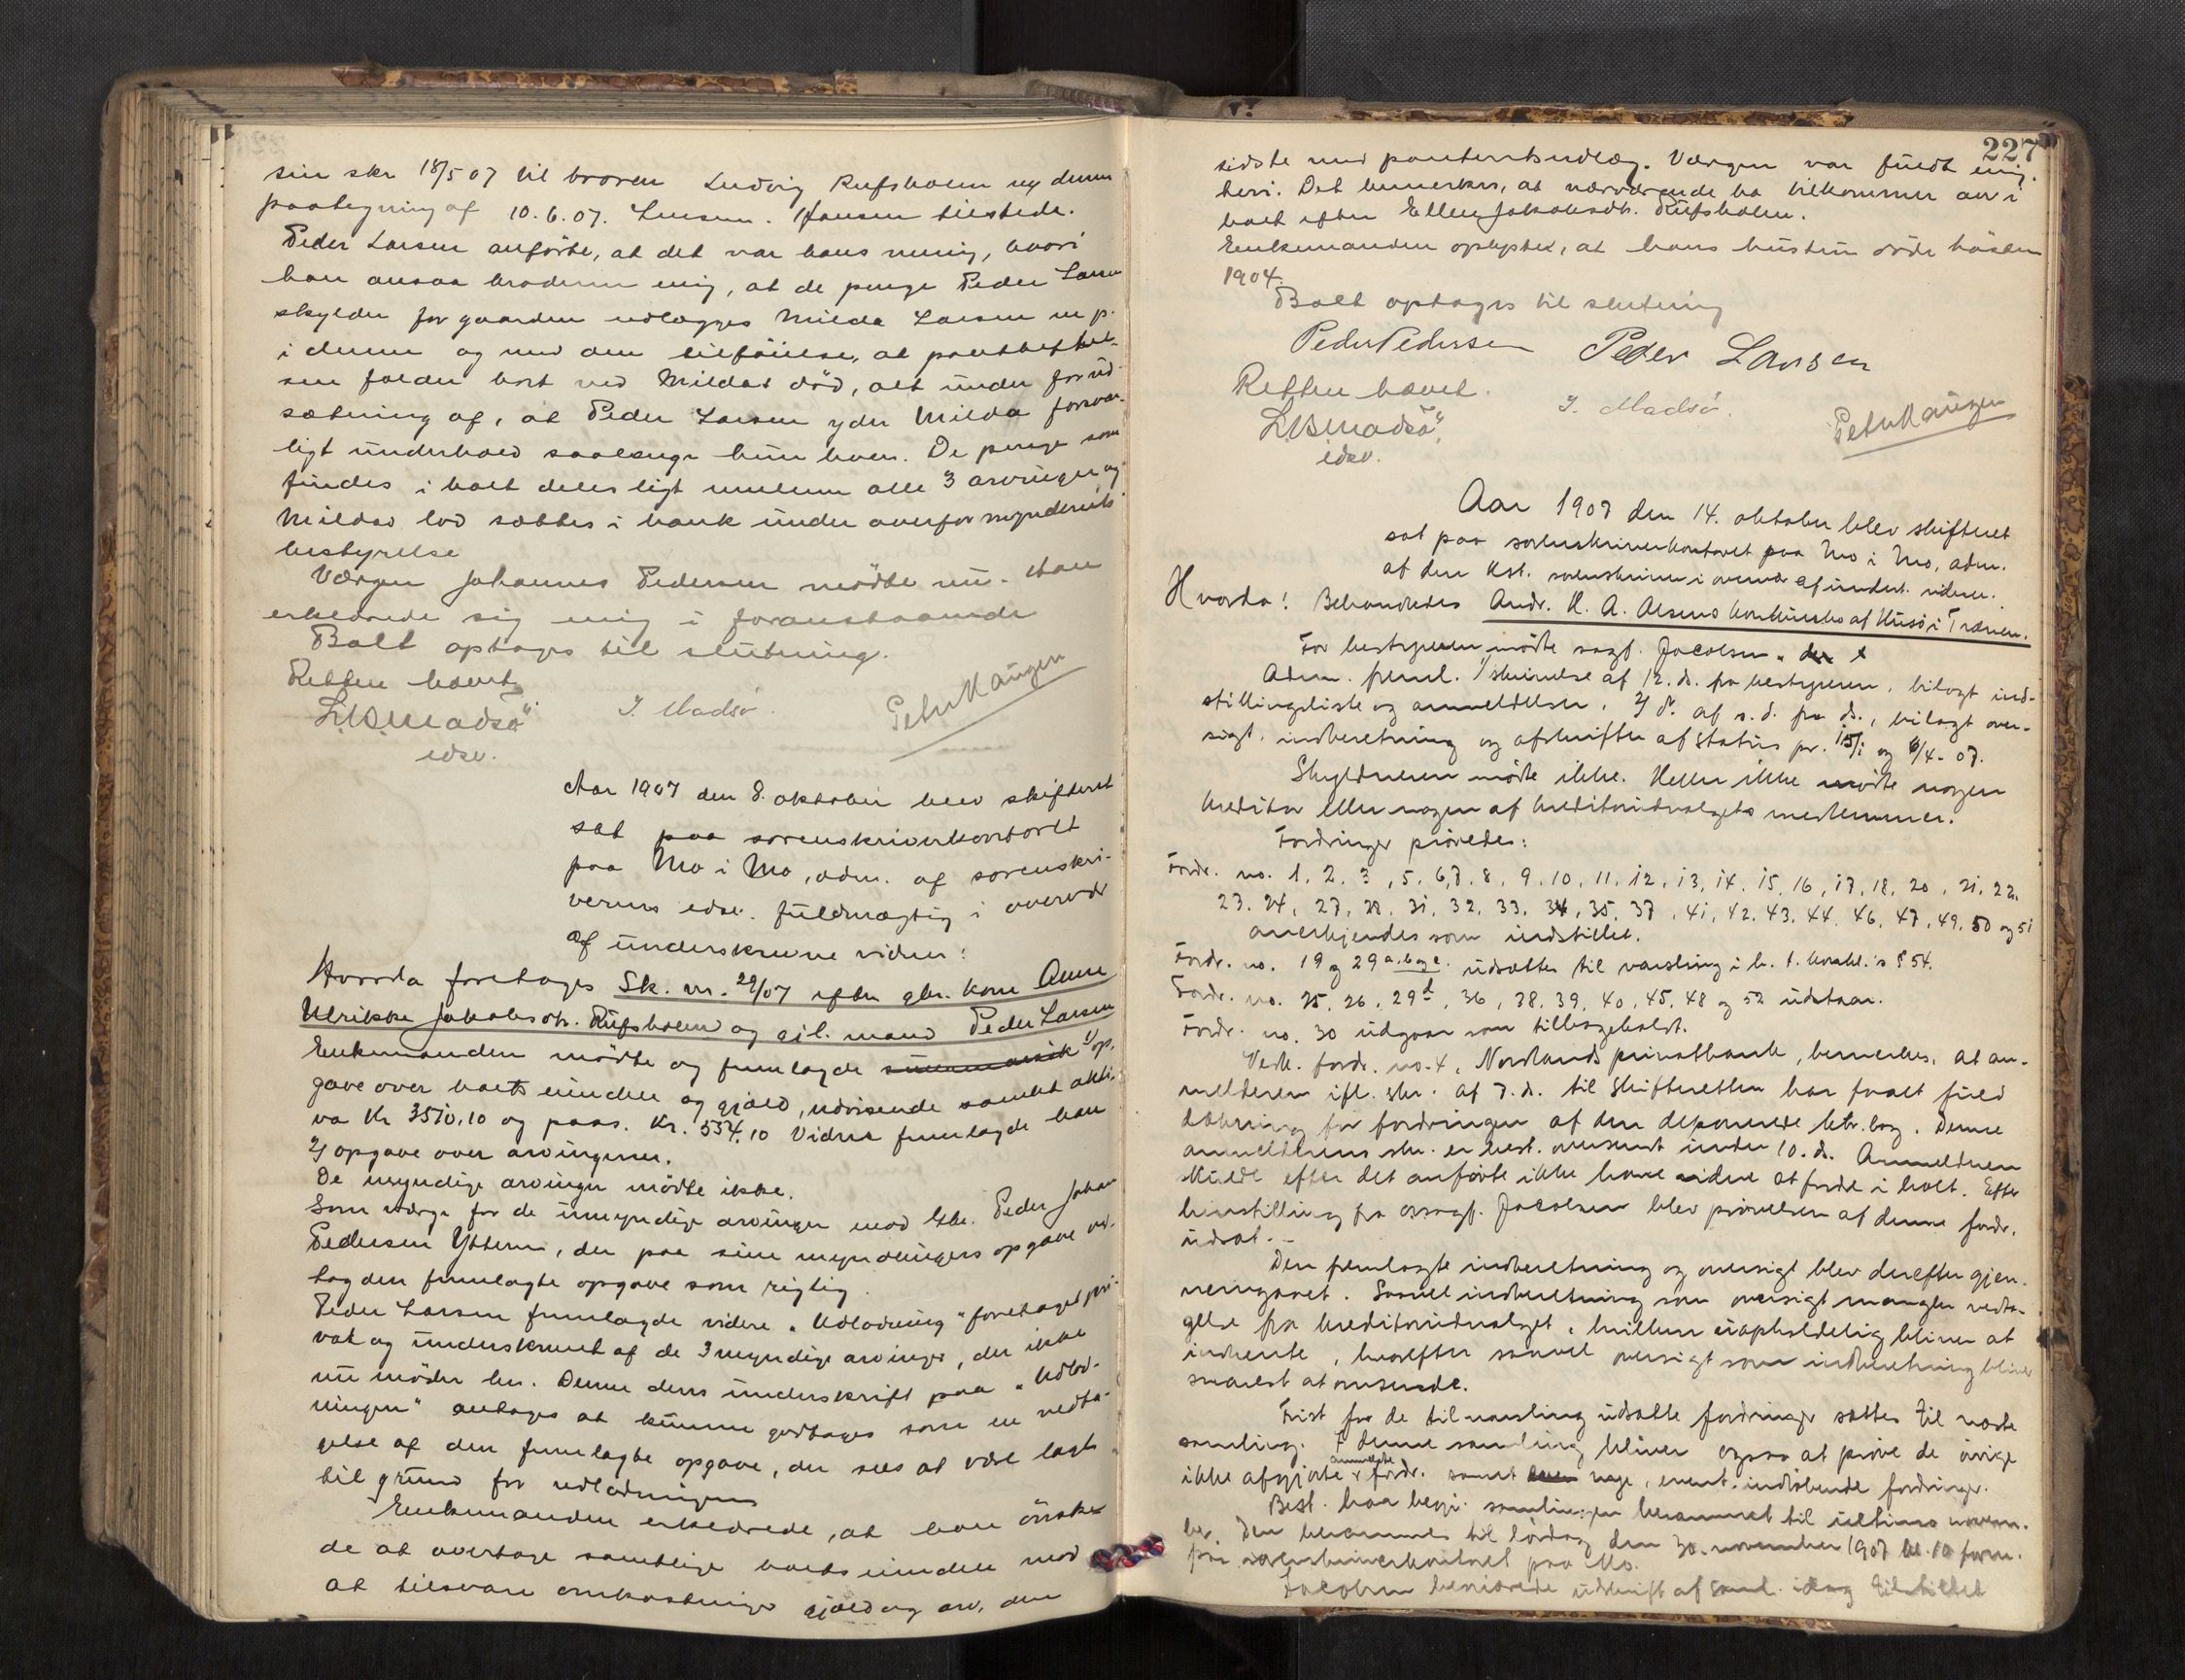 sin skr 18/5 07 til broren Ludvig Rufsholm og dennes
paategning af 10.6.07. Hansen tilstede.
Peder Larsen anførte, at det var hans mening, hvori
han ansaa brødrene enig, at de penge Peder Larsen
skylder for gaarden udlægges Milda Larsen m p.
i denne og med den tilføielse, at panthæftel-
sen falder bort ved Mildas död, alt under forud-
sætning af, at Peder Larsen yder Milda forsvar-
ligt underhold saalænge hun lever. De penge som
findes i boet deles ligt mellem alle 3 arvinger og
Mildas lod sættes i bank under overformynderiets
bestyrelse
Værgen Johannes Pedersen mødte nu. Han
erklærede sig enig i foranstaaende
Boet optages til slutning.
Retten hævet
L.B. Madsø.
edsv.
J. Madsø.
Peter Haugen
Aar 1907 den 8. oktober blev skifteret
sat paa sorenskriverkontoret
paa Mo i Mo, adm. af sorenskri-
verens edsv. fuldmægtig i overvær
af underskrevne vidner:
Hvorda foretoges Sk. nr. 29/07 efter gbr. kone Anne
Ulrikke Jakobsdtr. Rufsholm og gjl. mand Peder Larsen
Enkemanden mødte og fremlagde summarisk 1) op-
gave over boets eiendele og gjæld, udvisende samlet akti-
va Kr 3510,10 og pass. Kr. 534,10 Videre fremlagde han
2) opgave over arvingerne.
De myndige arvinger mødte ikke.
Som værge for de umyndige arvinger mød Gbr. Peder Johan
Pedersen Ytteren, der paa sine myndlingers opgave ved-
tog den fremlagte opgave som rigtig.
Peder Larsen fremlagde videre "Udlodning" foretaget pri-
vat og underskrevet af de 3 myndige arvinger, der ikke
nu møder her. Denne deres underskrift paa "Udlod-
ningen" antages at kunne godtages som en vedta-
gelse af den fremlagte opgave, der sees at være lagt
til grund for udlodningen
Enkemanden erklærede, at han ønske-
de at overtage samtlige boets eiendele mod
at tilsvare omkostninger gjæld og arv, den
227
sidste med panterets udlæg. Værgen var fuldt enig
heri. Det bemerkes, at nærværende bo tilkommer arv i
boet efter Ellen Jakobsdtr. Rufsholm.
Enkemanden oplyste, at hans hustru døde høsten
1904.
Boet optages til slutning
Peder Pedersen Peder Larsen
Retten hævet.
L.B. Madsø.
edsv.
J. Madsø.
Peter Haugen
Aar 1907 den 14. oktober blev skifteret
sat paa sorenskriverkontoret paa Mo i Mo, adm.
af den kst. sorenskriver i overvær af undert. vidner.
Hvorda! Behandledes Andr. H. A. Olsens konkursbo af Husø i Trænen.
For bestyreren mødte sagf. Jacobsen.
Adm. freml. 1/ skrivelse af 12. ds. fra bestyreren, bilagt ind-
stillingsliste og anmeldelser, 2/ do. af s. d. fra ds., bilagt over-
sigt, indberetning og afskrifter af status pr. 15/1 og 6/4 - 07.
Skyldneren mødte ikke. Heller ikke mødte nogen
kreditor eller nogen af kreditorudvalgets medlemmer.
Fordringer prøvedes:
Fordr. no. 1. 2. 3, 5. 6, 7. 8, 9. 10. 11. 12. 13. 14. 15. 16, 17. 18. 20, 21. 22.
23. 24, 27, 28. 31. 32. 33. 34, 35. 37, 41, 42. 43. 44. 46. 47, 49. 50 og 51
anerkjendes som indstillet.
Fordr. no. 19 og 29 a. b og c. udsættes til varsling i h. t. konkl.'s § 54.
Fordr. no. 25. 26. 29 d, 36, 38. 39. 40. 45. 48 og 52 udstaar.
Fordr. no. 30 udgaar som tilbagekaldt.
Vedk. fordr. no. 4, Nordlands privatbank, bemerkes, at an-
melderen ifl. skr. af 7. ds. til skifteretten har faaet fuld
dækning for fordringen af den deponerede ktr. bog. Denne
anmelderens skr. er best. oversendt under 10. ds. Anmelderen
skulde efter det anførte ikke have videre at fordre i boet. Efter
henstilling fra sagf. Jacobsen blev prøvelsen af denne fordr.
udsat. -
Den fremlagte indberetning og oversigt blev derefter gjen-
nemgaaet. Saavel indberetning som oversigt mangler vedta-
gelse fra kreditorudvalget, hvilken uopholdelig bliver at
indhente, hvorefter saavel oversigt som indberetning bliver
snarest at omsende.
Frist for de til varsling udsatte fordringer sættes til næste
samling. I denne samling bliver ogsaa at prøve de øvrige
ikke afgjorte anmeldte fordr. samt nye, event. indløbende fordringer.
Best. har begj. samlingen berammet til ultimo novem-
ber. Den berammes til lørdag den 30. november 1907 kl. 10 form.
paa sorenskriverkontoret paa Mo.
Jacobsen begjærede udskrift af saml. idag tilstillet